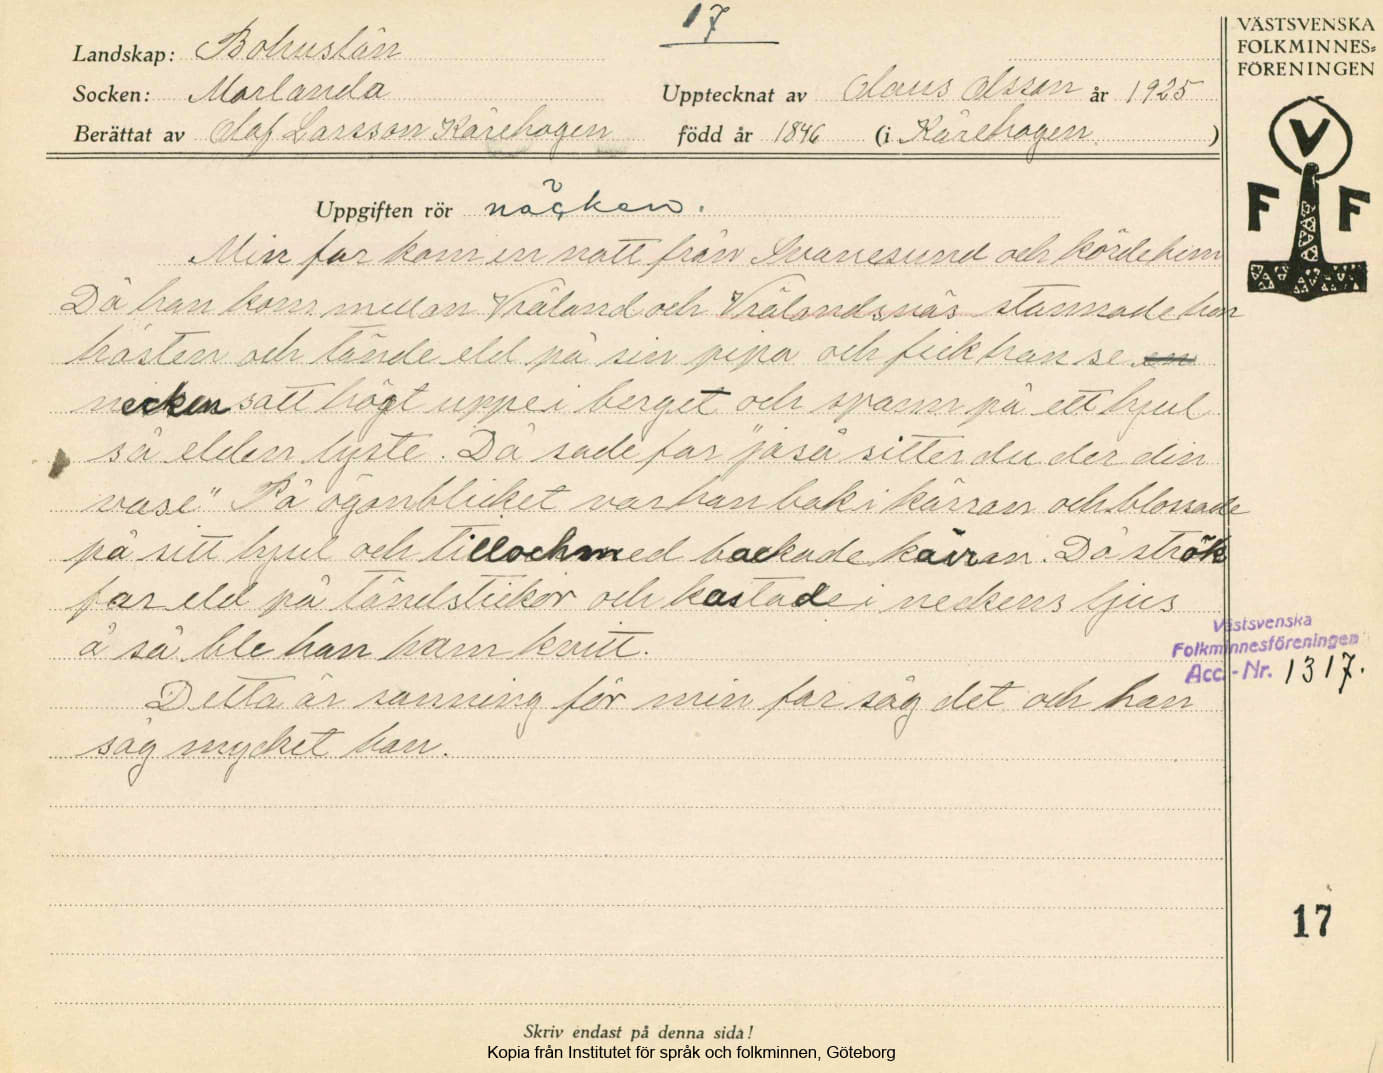 17
VÄSTSVENSKA
FOLKMINNES=
FÖRENINGEN
Landskap: Bohuslän
Socken: Morlanda
Upptecknat av Claus Olsson år 1925
Berättat av Olof Larsson Kärehogen född år 1846 (i Kärehogen )
V
F F
Uppgiften rör näcken.
Min far kom en natt från Svanesund och körde hem
Då han kom mellan Vräland och Vrälandsnäs stannade han
hästen och tände eld på sin pipa och fick han se en
necken satt högt uppe i berget och spann på ett hjul
så elden lyste. Då sade far "jaså sitter du der din
nase" På ögonblicket var han bak i kärran och blossade
på sitt hjul och tillochmed backade kärran. Då strök
far eld på tändstickor och kastade i neckens ljus
å så ble han ham kvitt.
Västsvenska
Folkminnesföreningen
Acc.-Nr. 1317.
Detta är sanning för min far såg det och han
såg mycket han.
17
Skriv endast på denna sida!
Kopia från Institutet för språk och folkminnen, Göteborg